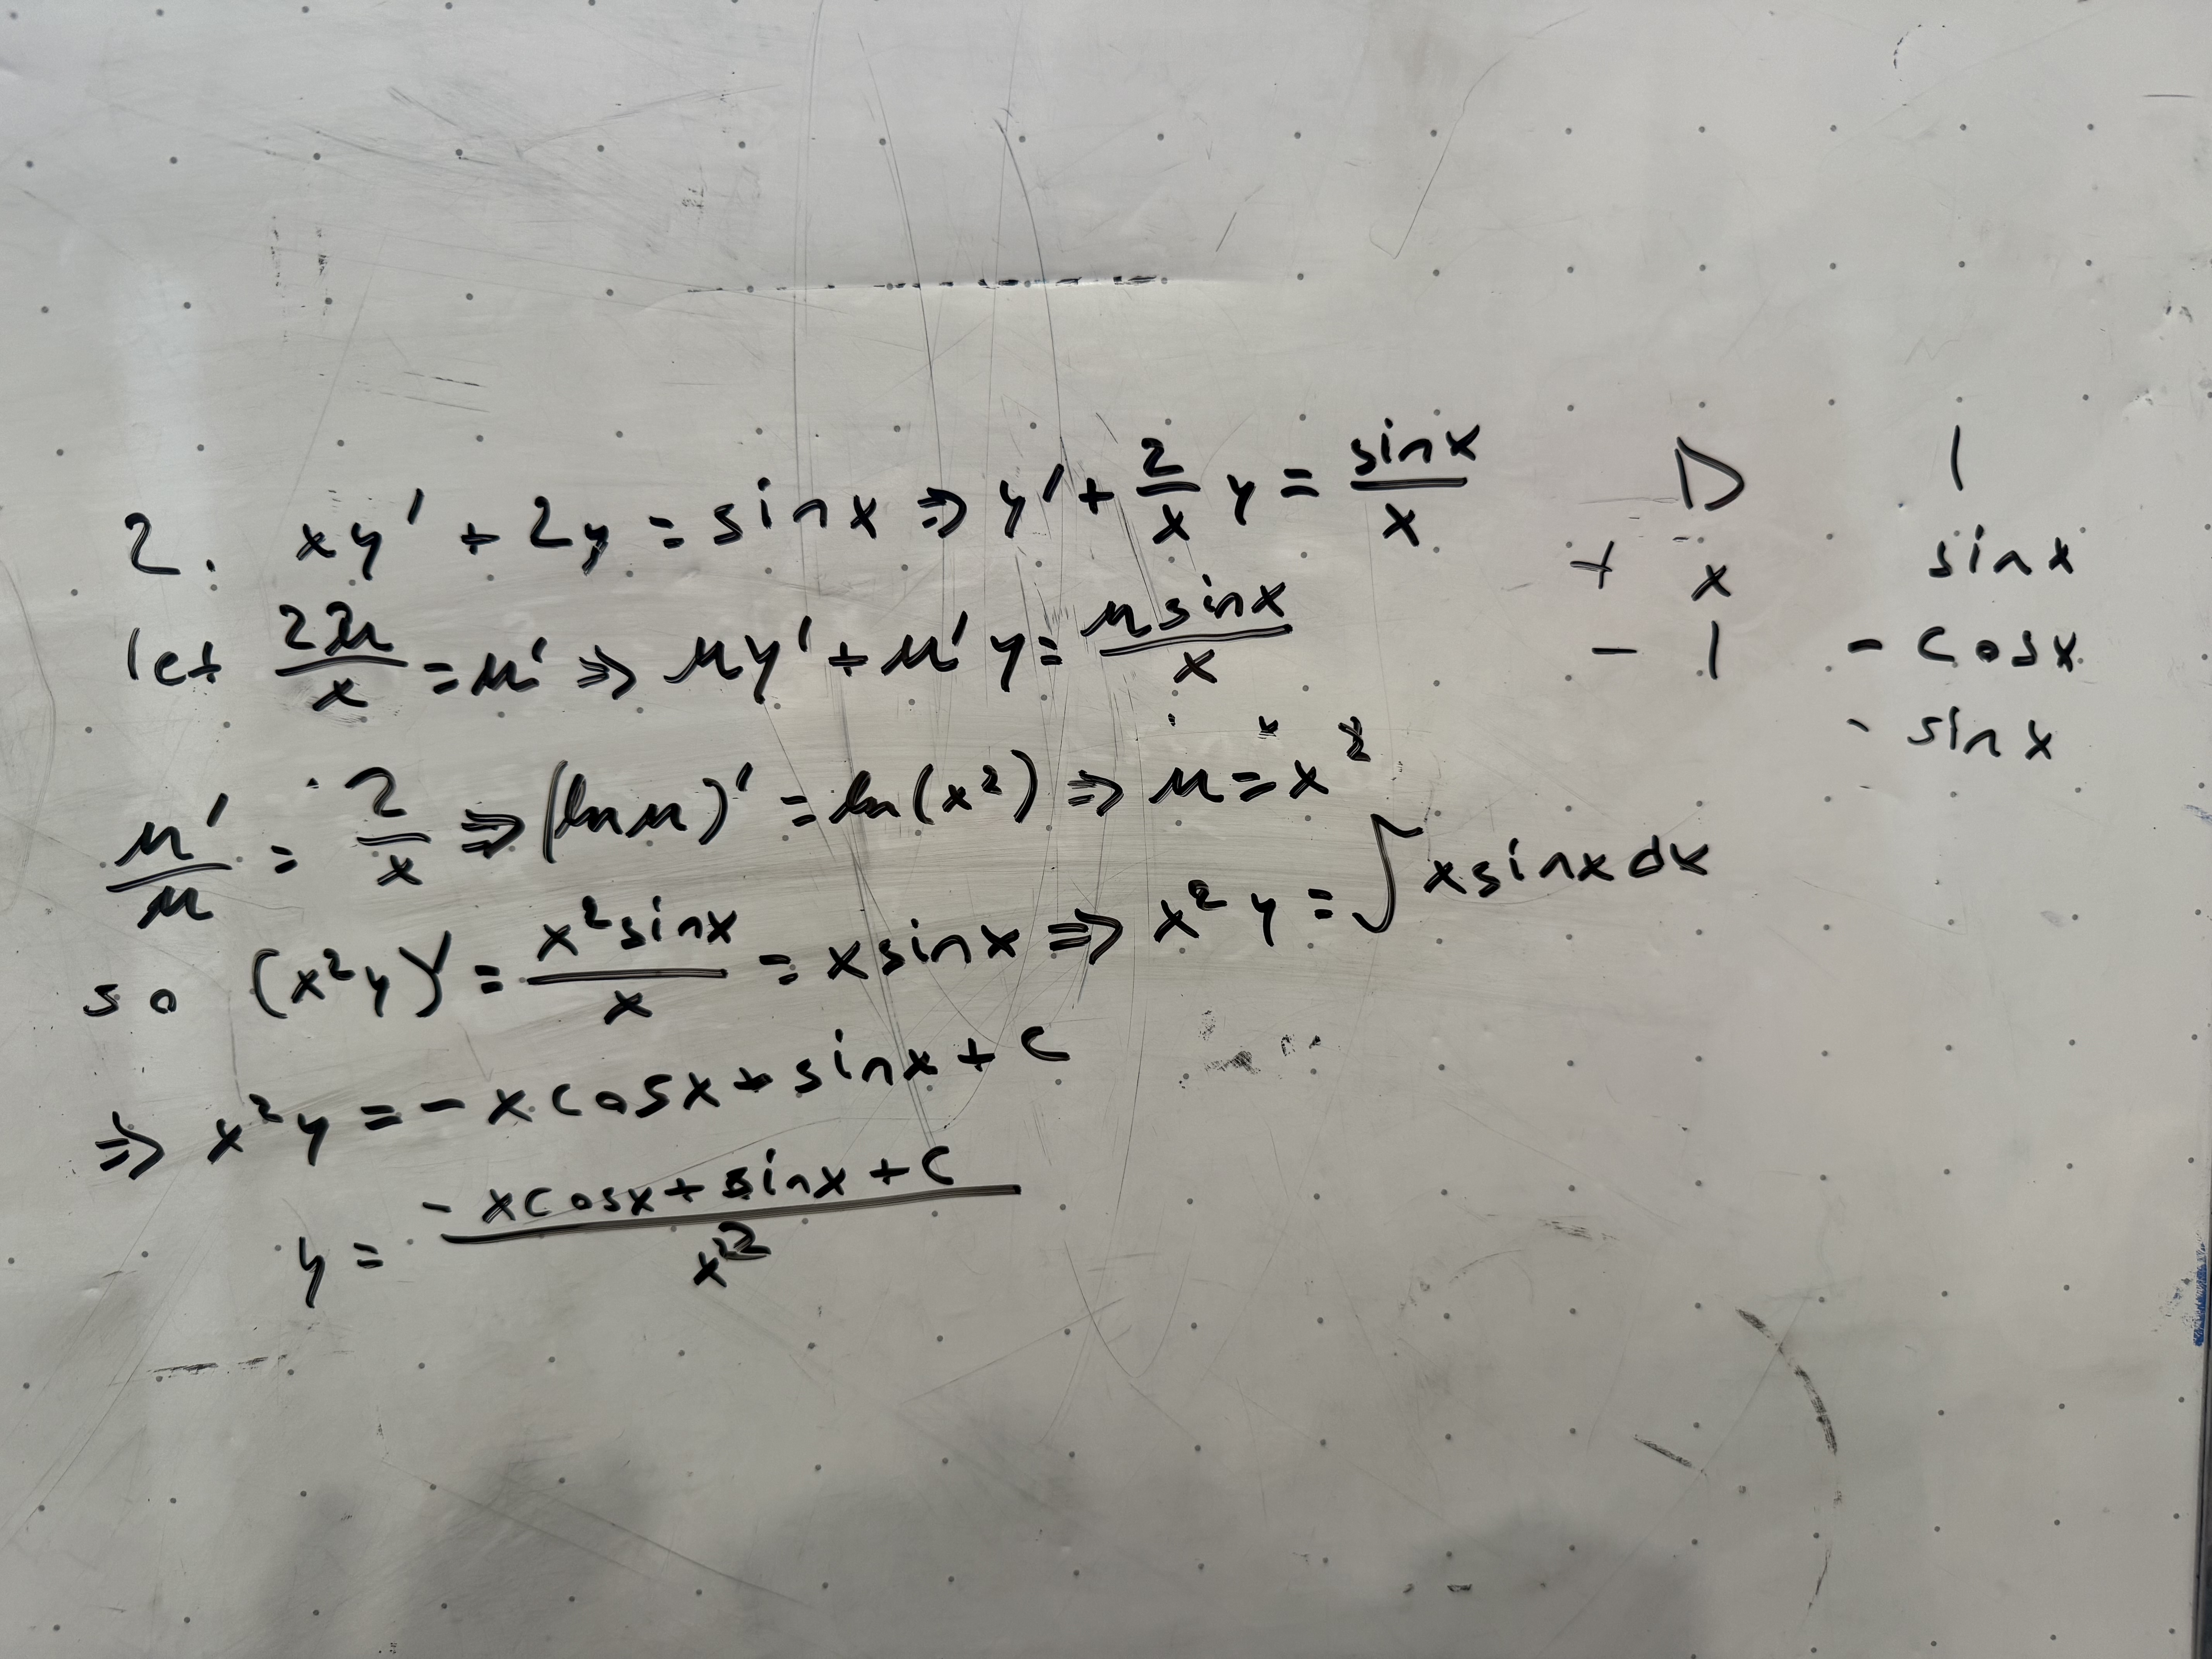 2. xy' + 2y = sinx ⇒ y' + 2/x y = sinx/x
let 2μ/x = μ' ⇒ μy' + μ'y = μsinx/x
μ'/μ = 2/x ⇒ (lnμ)' = ln(x²) ⇒ μ = x²
so (x²y)' = x²sinx/x = xsinx ⇒ x²y = ∫xsinxdx
⇒ x²y = -xcosx + sinx + C
y = (-xcosx + sinx + C)/x²
D I
+ x sinx
- 1 -cosx
-sinx